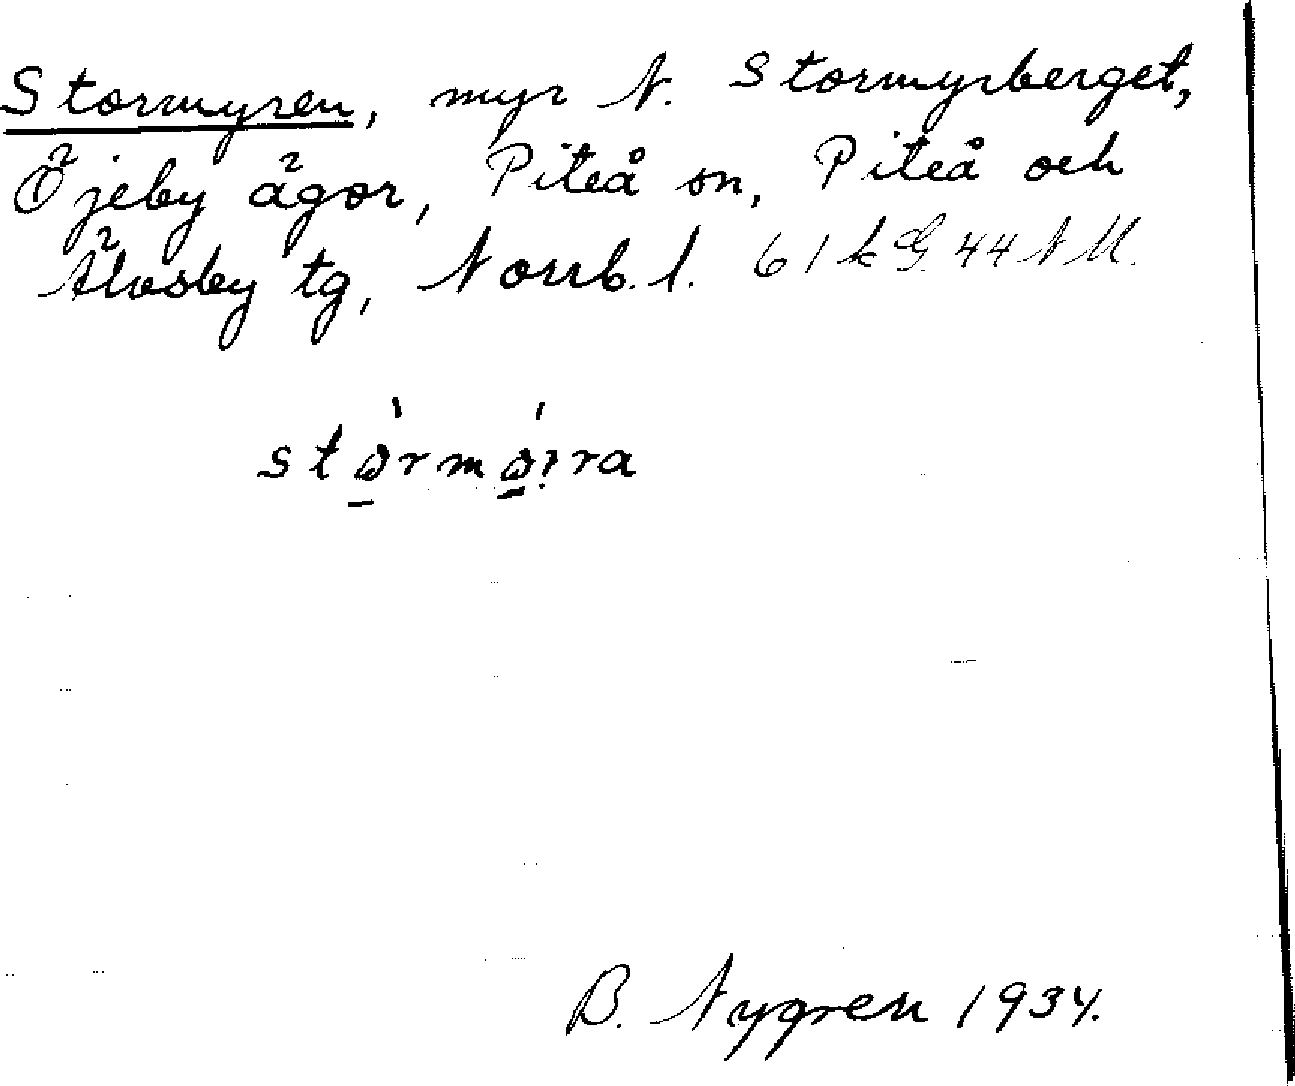 Stormyren, myr N. Stormyrberget,
Öjeby ägor, Piteå sn, Piteå och
Älvsby tg, Norrb. l. 61 k G. 44 N M.
B. Nygren 1934.